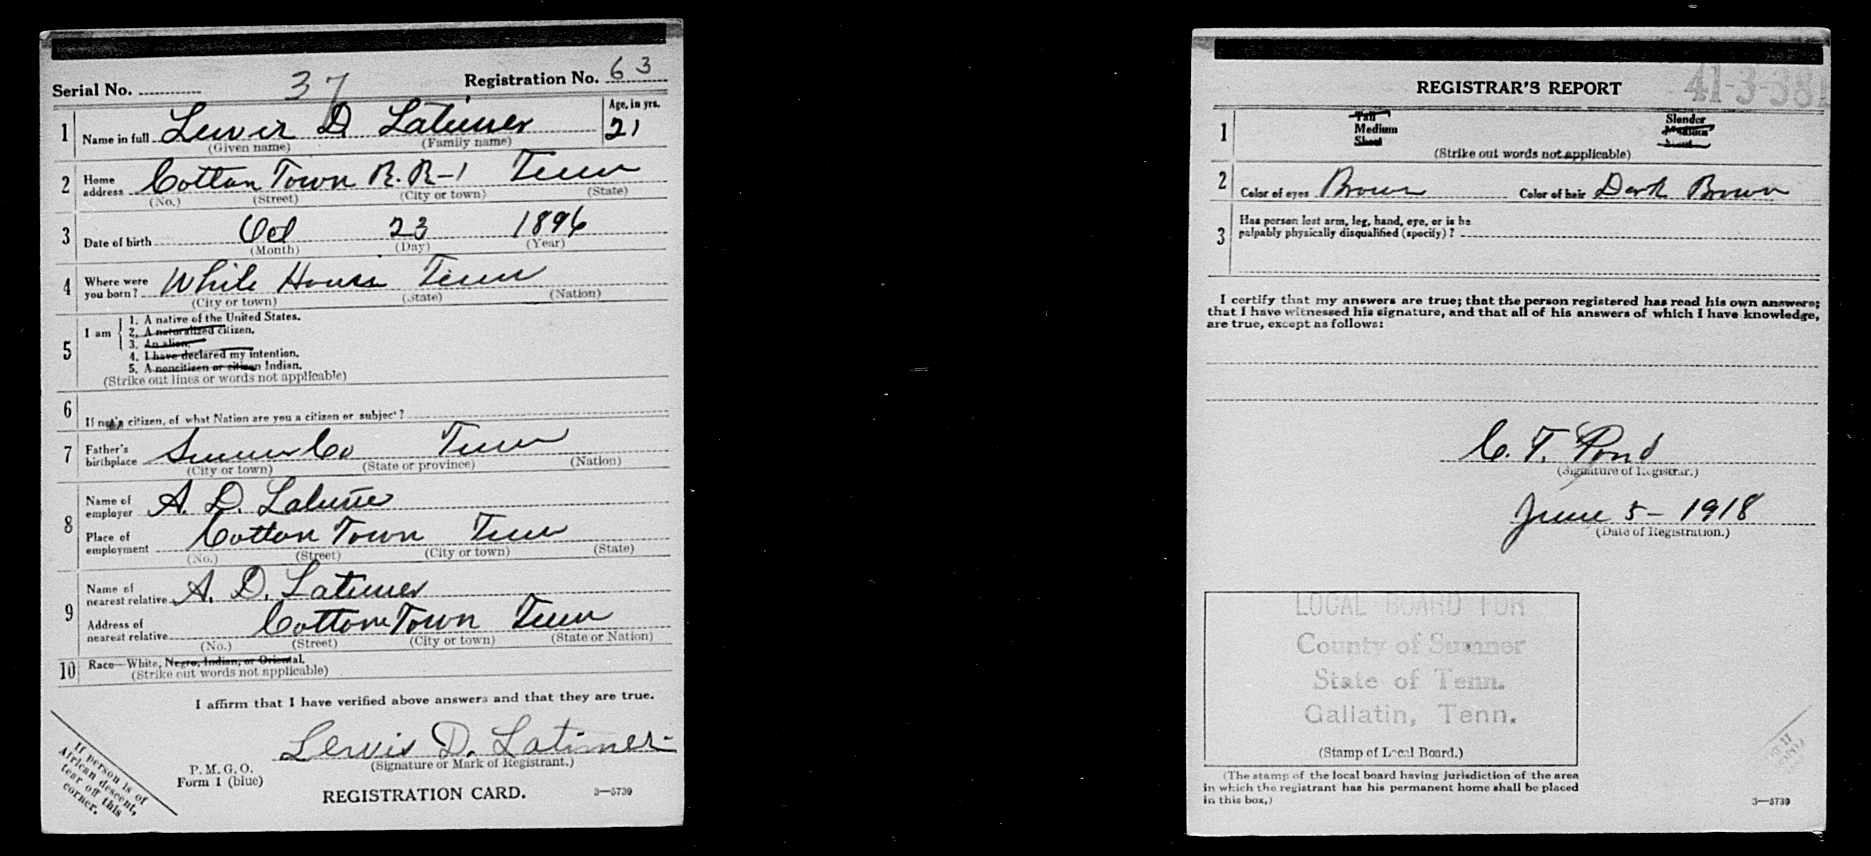 Serial No. 37 Registration No. 63
1 Name in full Lewis D Latimer Age, in yrs. 21
(Given name) (Family name)
2 Home address Cotton Town R.R-1 Tenn
(No.) (Street) (City or town) (State)
3 Date of birth Oct 23 1896
(Month) (Day) (Year)
4 Where were you born? White House Tenn
(City or town) (State) (Nation)
5 I am
1. A native of the United States.
2. A naturalized citizen.
3. An alien.
4. I have declared my intention.
5. A noncitizen or citizen Indian.
(Strike out lines or words not applicable)
6 If not a citizen, of what Nation are you a citizen or subject?
7 Father's birthplace Sumner Co Tenn
(City or town) (State or province) (Nation)
8 Name of employer A. D. Latimer
Place of employment Cotton Town Tenn
(No.) (Street) (City or town) (State)
9 Name of nearest relative A. D. Latimer
Address of nearest relative Cotton Town Tenn
(No.) (Street) (City or town) (State or Nation)
10 Race—White, Negro, Indian, or Oriental.
(Strike out words not applicable)
I affirm that I have verified above answers and that they are true.
Lewis D. Latimer
(Signature or Mark of Registrant.)
P. M. G. O.
Form 1 (blue)
REGISTRATION CARD. 3—5739
If person is of
African descent,
tear off this
corner.
REGISTRAR'S REPORT
41-3-38
1 Tall Slender
Medium Medium
Short Stout
(Strike out words not applicable)
2 Color of eyes Brown Color of hair Dark Brown
3 Has person lost arm, leg, hand, eye, or is he
palpably physically disqualified (specify)?
I certify that my answers are true; that the person registered has read his own answers;
that I have witnessed his signature, and that all of his answers of which I have knowledge,
are true, except as follows:
C. T. Pond
(Signature of Registrar.)
June 5-1918
(Date of Registration.)
LOCAL BOARD FOR
County of Sumner
State of Tenn.
Gallatin, Tenn.
(Stamp of Local Board.)
(The stamp of the local board having jurisdiction of the area
in which the registrant has his permanent home shall be placed
in this box.)
3—5739